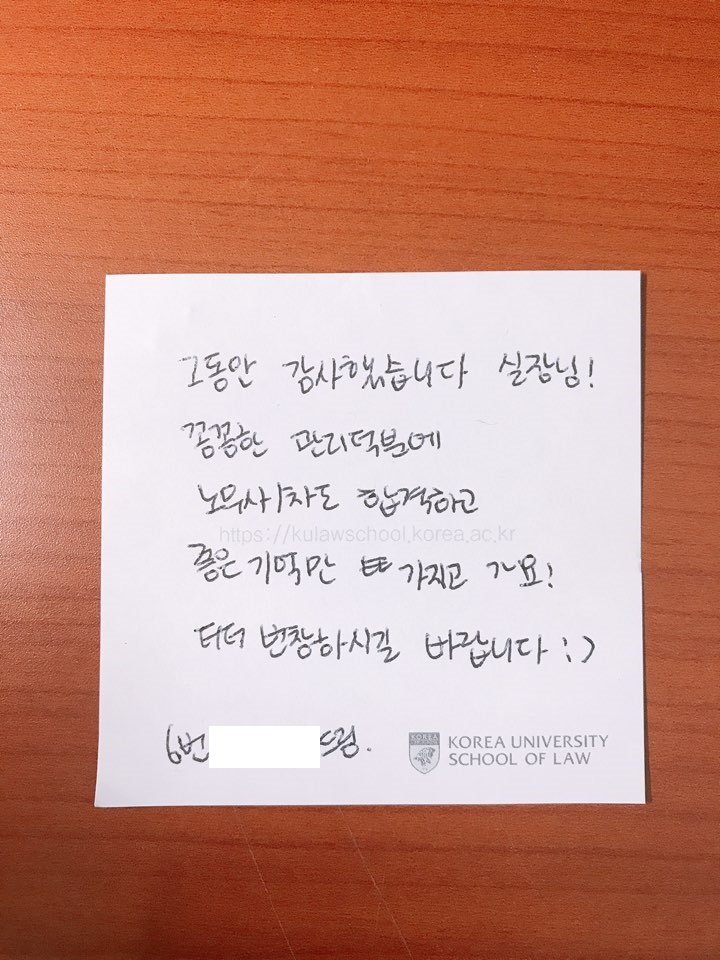 그동안 감사했습니다 실장님!
꼼꼼한 관리덕분에
노무사1차도 합격하고
https://kulawschool.korea.ac.kr
좋은 기억만 가지고 가요!
더더 번창하시길 바랍니다 :)
6번 드림.
KOREA
KOREA UNIVERSITY
SCHOOL OF LAW